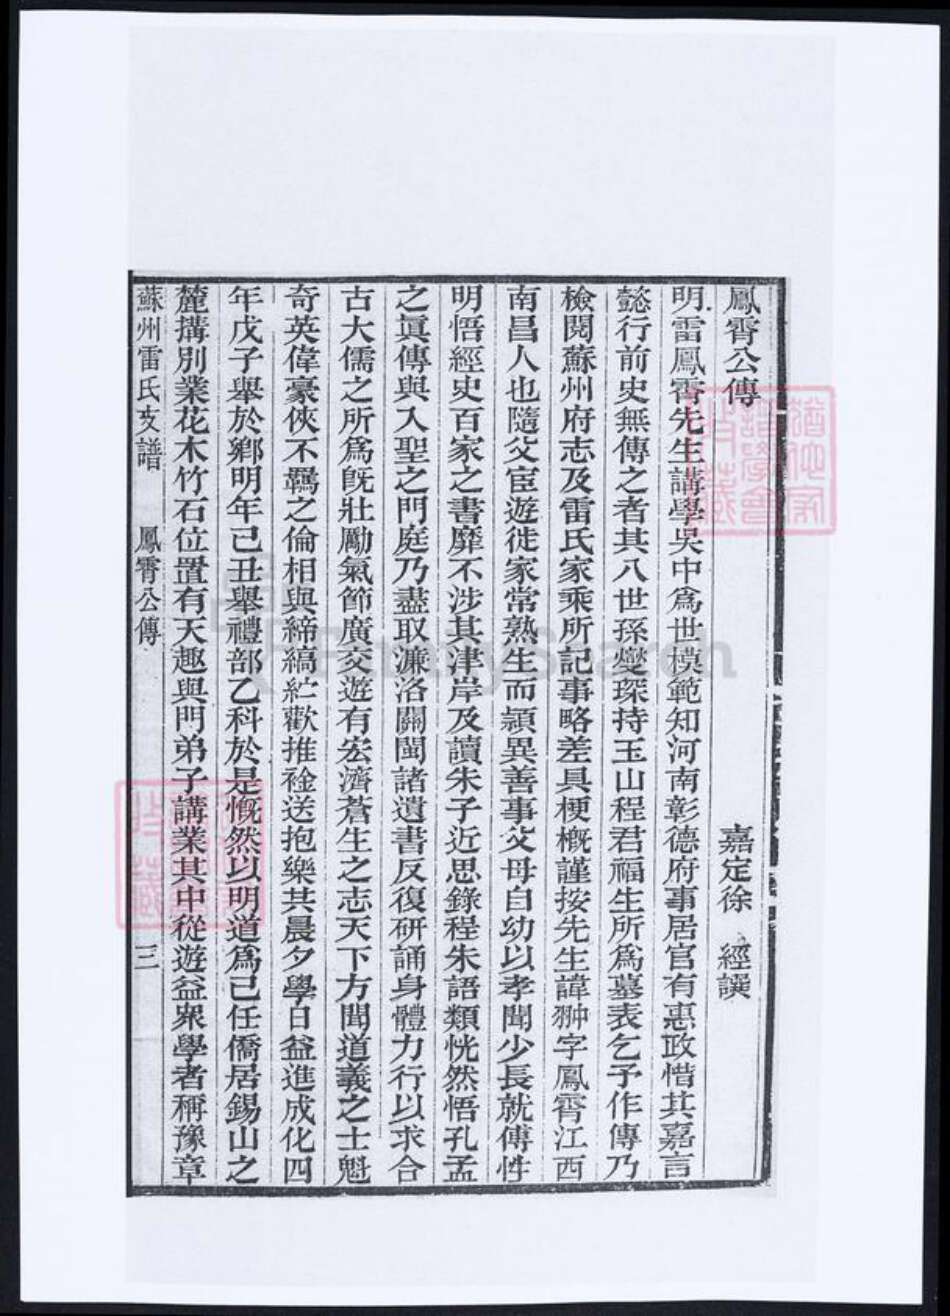 鳳霄公傳
嘉定徐 經譔
明雷鳳霄先生講學吳中爲世模範知河南彰德府事居官有惠政惜其嘉言
懿行前史無傳之者其八世孫燮琛持玉山程君福生所爲墓表乞予作傳乃
檢閱蘇州府志及雷氏家乘所記事略差具梗概謹按先生諱翀字鳳霄江西
南昌人也隨父宦遊徙家常熟生而頴異善事父母自幼以孝聞少長就傅性
明悟經史百家之書靡不涉其津岸及讀朱子近思錄程朱語類恍然悟孔孟
之眞傳與入聖之門庭乃盡取濂洛關閩諸遺書反復研誦身體力行以求合
古大儒之所爲旣壯勵氣節廣交遊有宏濟蒼生之志天下方聞道義之士魁
奇英偉豪俠不羈之倫相與締縞紵歡推襟送抱樂其晨夕學日益進成化四
年戊子舉於鄉明年己丑舉禮部乙科於是慨然以明道爲己任僑居錫山之
麓搆別業花木竹石位置有天趣與門弟子講業其中從遊益衆學者稱豫章
蘇州雷氏支譜 鳳霄公傳 三
FamilySearch